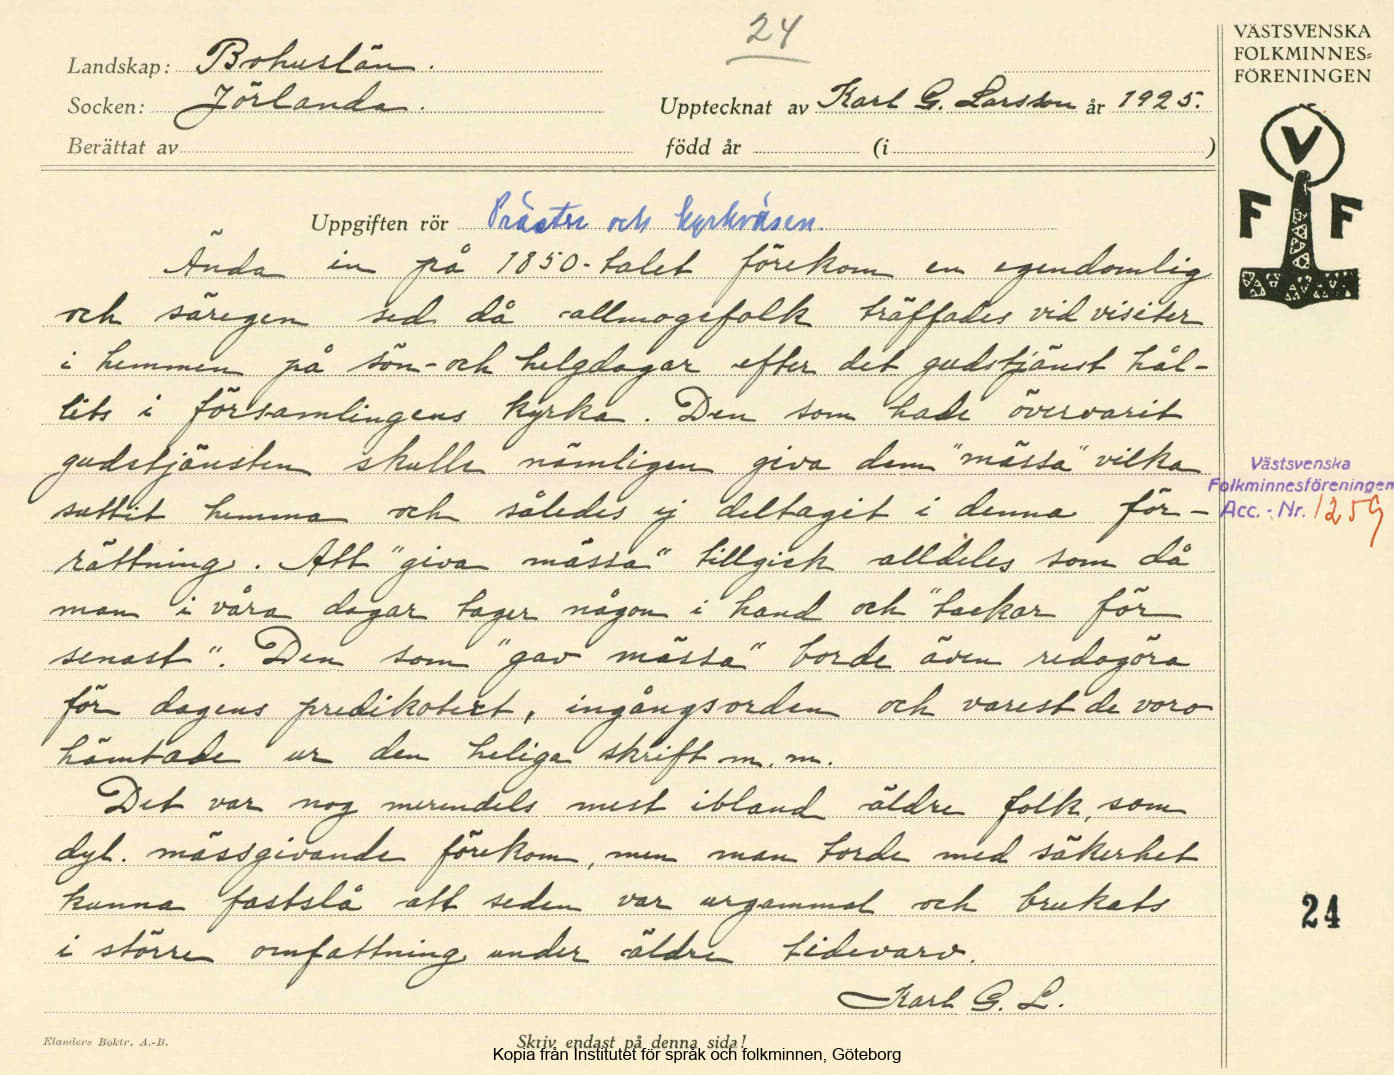 24
Landskap: Bohuslän.
Socken: Jörlanda.
Upptecknat av Karl G. Larsson år 1925.
Berättat av
född år (i )
VÄSTSVENSKA
FOLKMINNES-
FÖRENINGEN
V
F F
Uppgiften rör Präster och kyrkväsen.
Ända in på 1850-talet förekom en egendomlig
och säregen sed då allmogefolk träffades vid visiter
i hemmen på sön-och helgdagar efter det gudstjänst hål-
lits i församlingens kyrka. Den som hade övervarit
gudstjänsten skulle nämligen giva dem "mässa" vilka
suttit hemma och således ej deltagit i denna för-
rättning. Att "giva mässa" tillgick alldeles som då
man i våra dagar tager någon i hand och "tackar för
senast". Den som "gav mässa" borde även redogöra
för dagens predikotext, ingångsorden och varest de voro
hämtade ur den heliga skrift m.m.
Det var nog merendels mest ibland äldre folk, som
dyl. mässgivande förekom, men man torde med säkerhet
kunna fastslå att seden var urgammal och brukats
i större omfattning under äldre tidevarv.
Karl G. L.
Västsvenska
Folkminnesföreningen
Acc. - Nr. 1259
24
Elanders Boktr. A.-B.
Skriv endast på denna sida!
Kopia från Institutet för språk och folkminnen, Göteborg